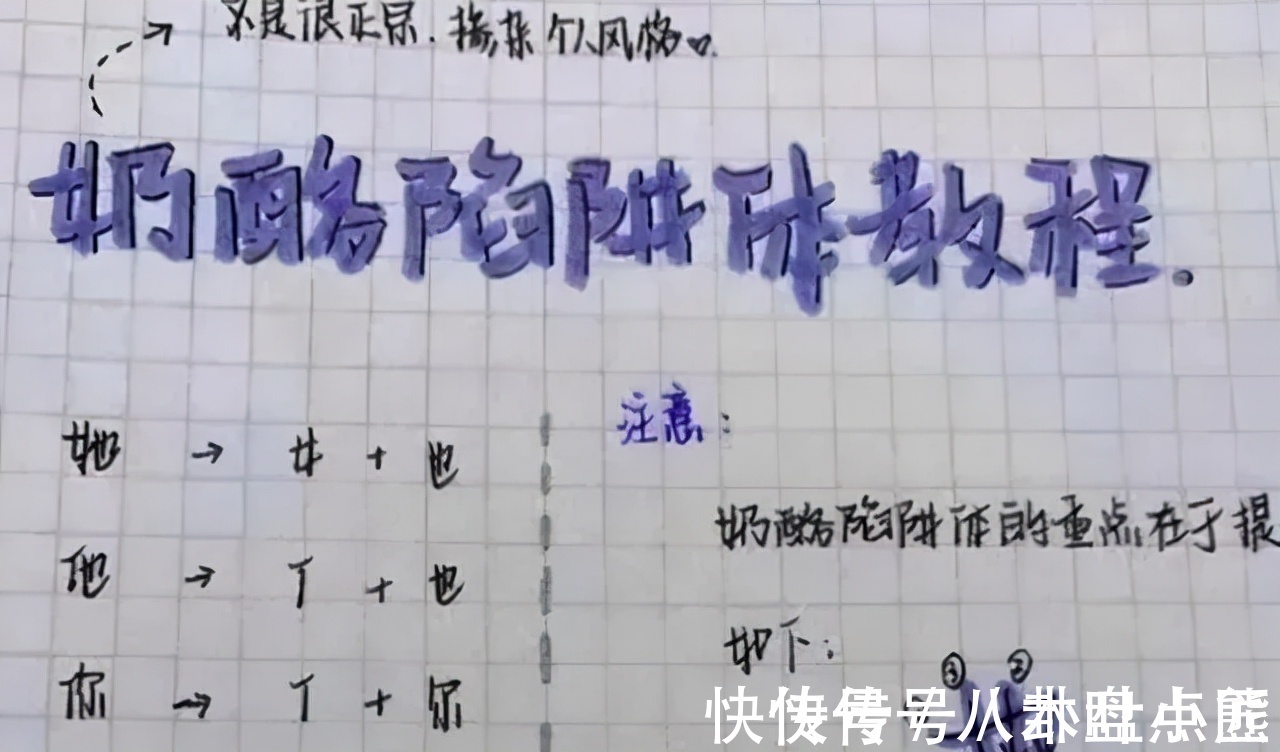 不是很正宗.掺杂个人风格
奶酪陷阱体教程.
她 → 女 + 也
他 → 亻 + 也
你 → 亻 + 尔
注意:
奶酪陷阱体的重点在于提
如下:
① ②
快传号